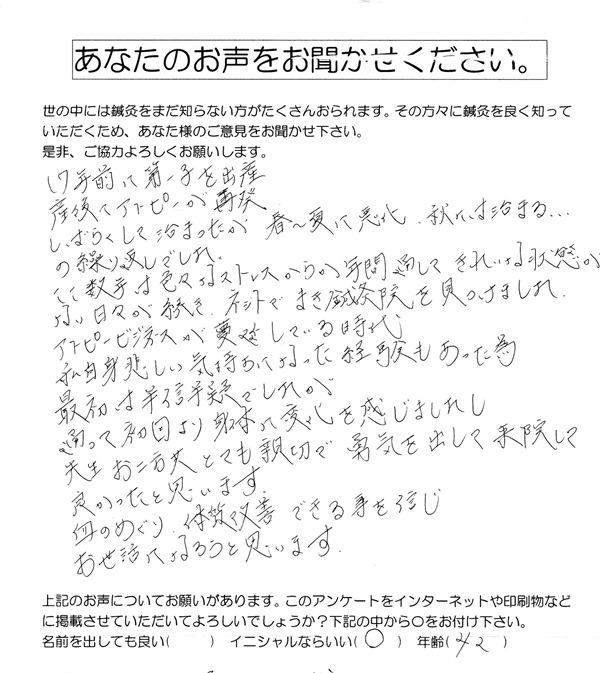 あなたのお声をお聞かせください。
世の中には鍼灸をまだ知らない方がたくさんおられます。その方々に鍼灸を良く知って
いただくため、あなた様のご意見をお聞かせ下さい。
是非、ご協力よろしくお願いします。
17年前に第一子を出産
産後にアトピーが再発
しばらくして治まったが 春〜夏に悪化、秋には治まる…
の繰り返しでした。
ここ数年は色々なストレスからか年間通してきれいな状態が
ない日々が続き、ネットでまき鍼灸院を見つけました。
アトピービジネスが蔓延している時代
私自身悲しい気持ちになった経験もあった為
最初は半信半疑でしたが
通って初回より身体に変化を感じましたし
先生お二方共とても親切で勇気を出して来院して
良かったと思います
血のめぐり、体質改善できる事を信じ
お世話になろうと思います。
上記のお声についてお願いがあります。このアンケートをインターネットや印刷物など
に掲載させていただいてよろしいでしょうか？下記の中から○をお付け下さい。
名前を出しても良い(　　) イニシャルならいい(○) 年齢(42)